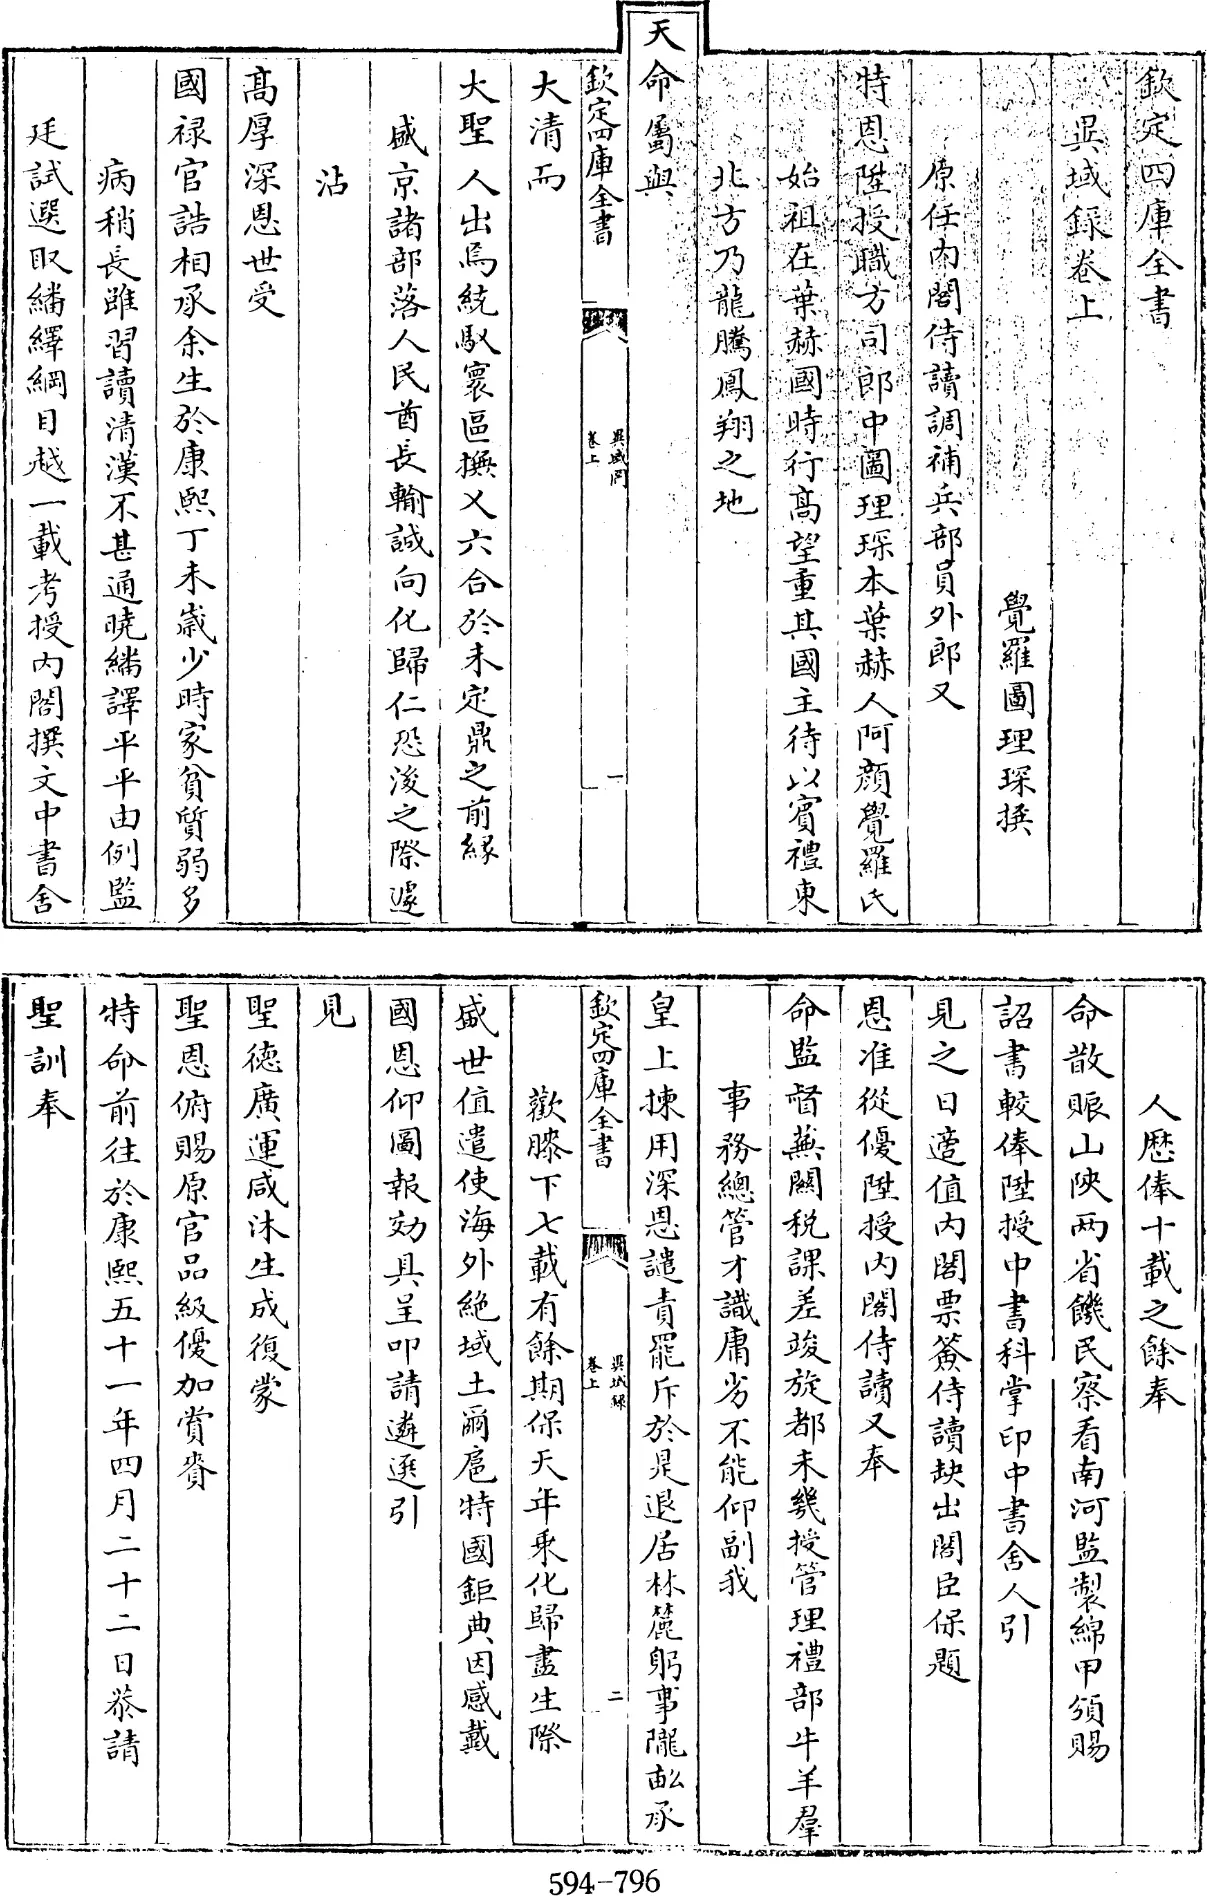 欽定四庫全書
異域録卷上
覺羅圖理琛撰
原任内閣侍讀調補兵部員外郎又
特恩陞授職方司郎中圖理琛本葉赫人阿顔覺羅氏
始祖在葉赫國時行髙望重其國主待以賓禮東
北方乃龍騰鳳翔之地
天命屬與
欽定四庫全書
異域録
卷上
一
大清而
大聖人出焉統馭寰區撫乂六合於未定鼎之前緣
盛京諸部落人民酋長輸誠向化歸仁恐後之際遂
沾
髙厚深恩世受
國禄官誥相承余生於康熙丁未歲少時家貧質弱多
病稍長雖習讀清漢不甚通曉繙譯平平由例監
廷試選取繙繹綱目越一載考授内閣撰文中書舍
人歴俸十載之餘奉
命散賑山陜兩省饑民察看南河監製綿甲頒賜
詔書較俸陞授中書科掌印中書舍人引
見之日適值内閣票簽侍讀缺出閣臣保題
恩准從優陞授内閣侍讀又奉
命監督蕪闗税課差竣旋都未幾授管理禮部牛羊羣
事務總管才識庸劣不能仰副我
皇上揀用深恩譴責罷斥於是退居林麓躬事隴畝承
欽定四庫全書
異域録
卷上
二
歡膝下七載有餘期保天年乗化歸盡生際
盛世值遣使海外絶域土爾扈特國鉅典因感戴
國恩仰圖報効具呈叩請遴選引
見
聖德廣運咸沐生成復蒙
聖恩俯賜原官品級優加賞賚
特命前往於康熙五十一年四月二十二日恭請
聖訓奉
594-796